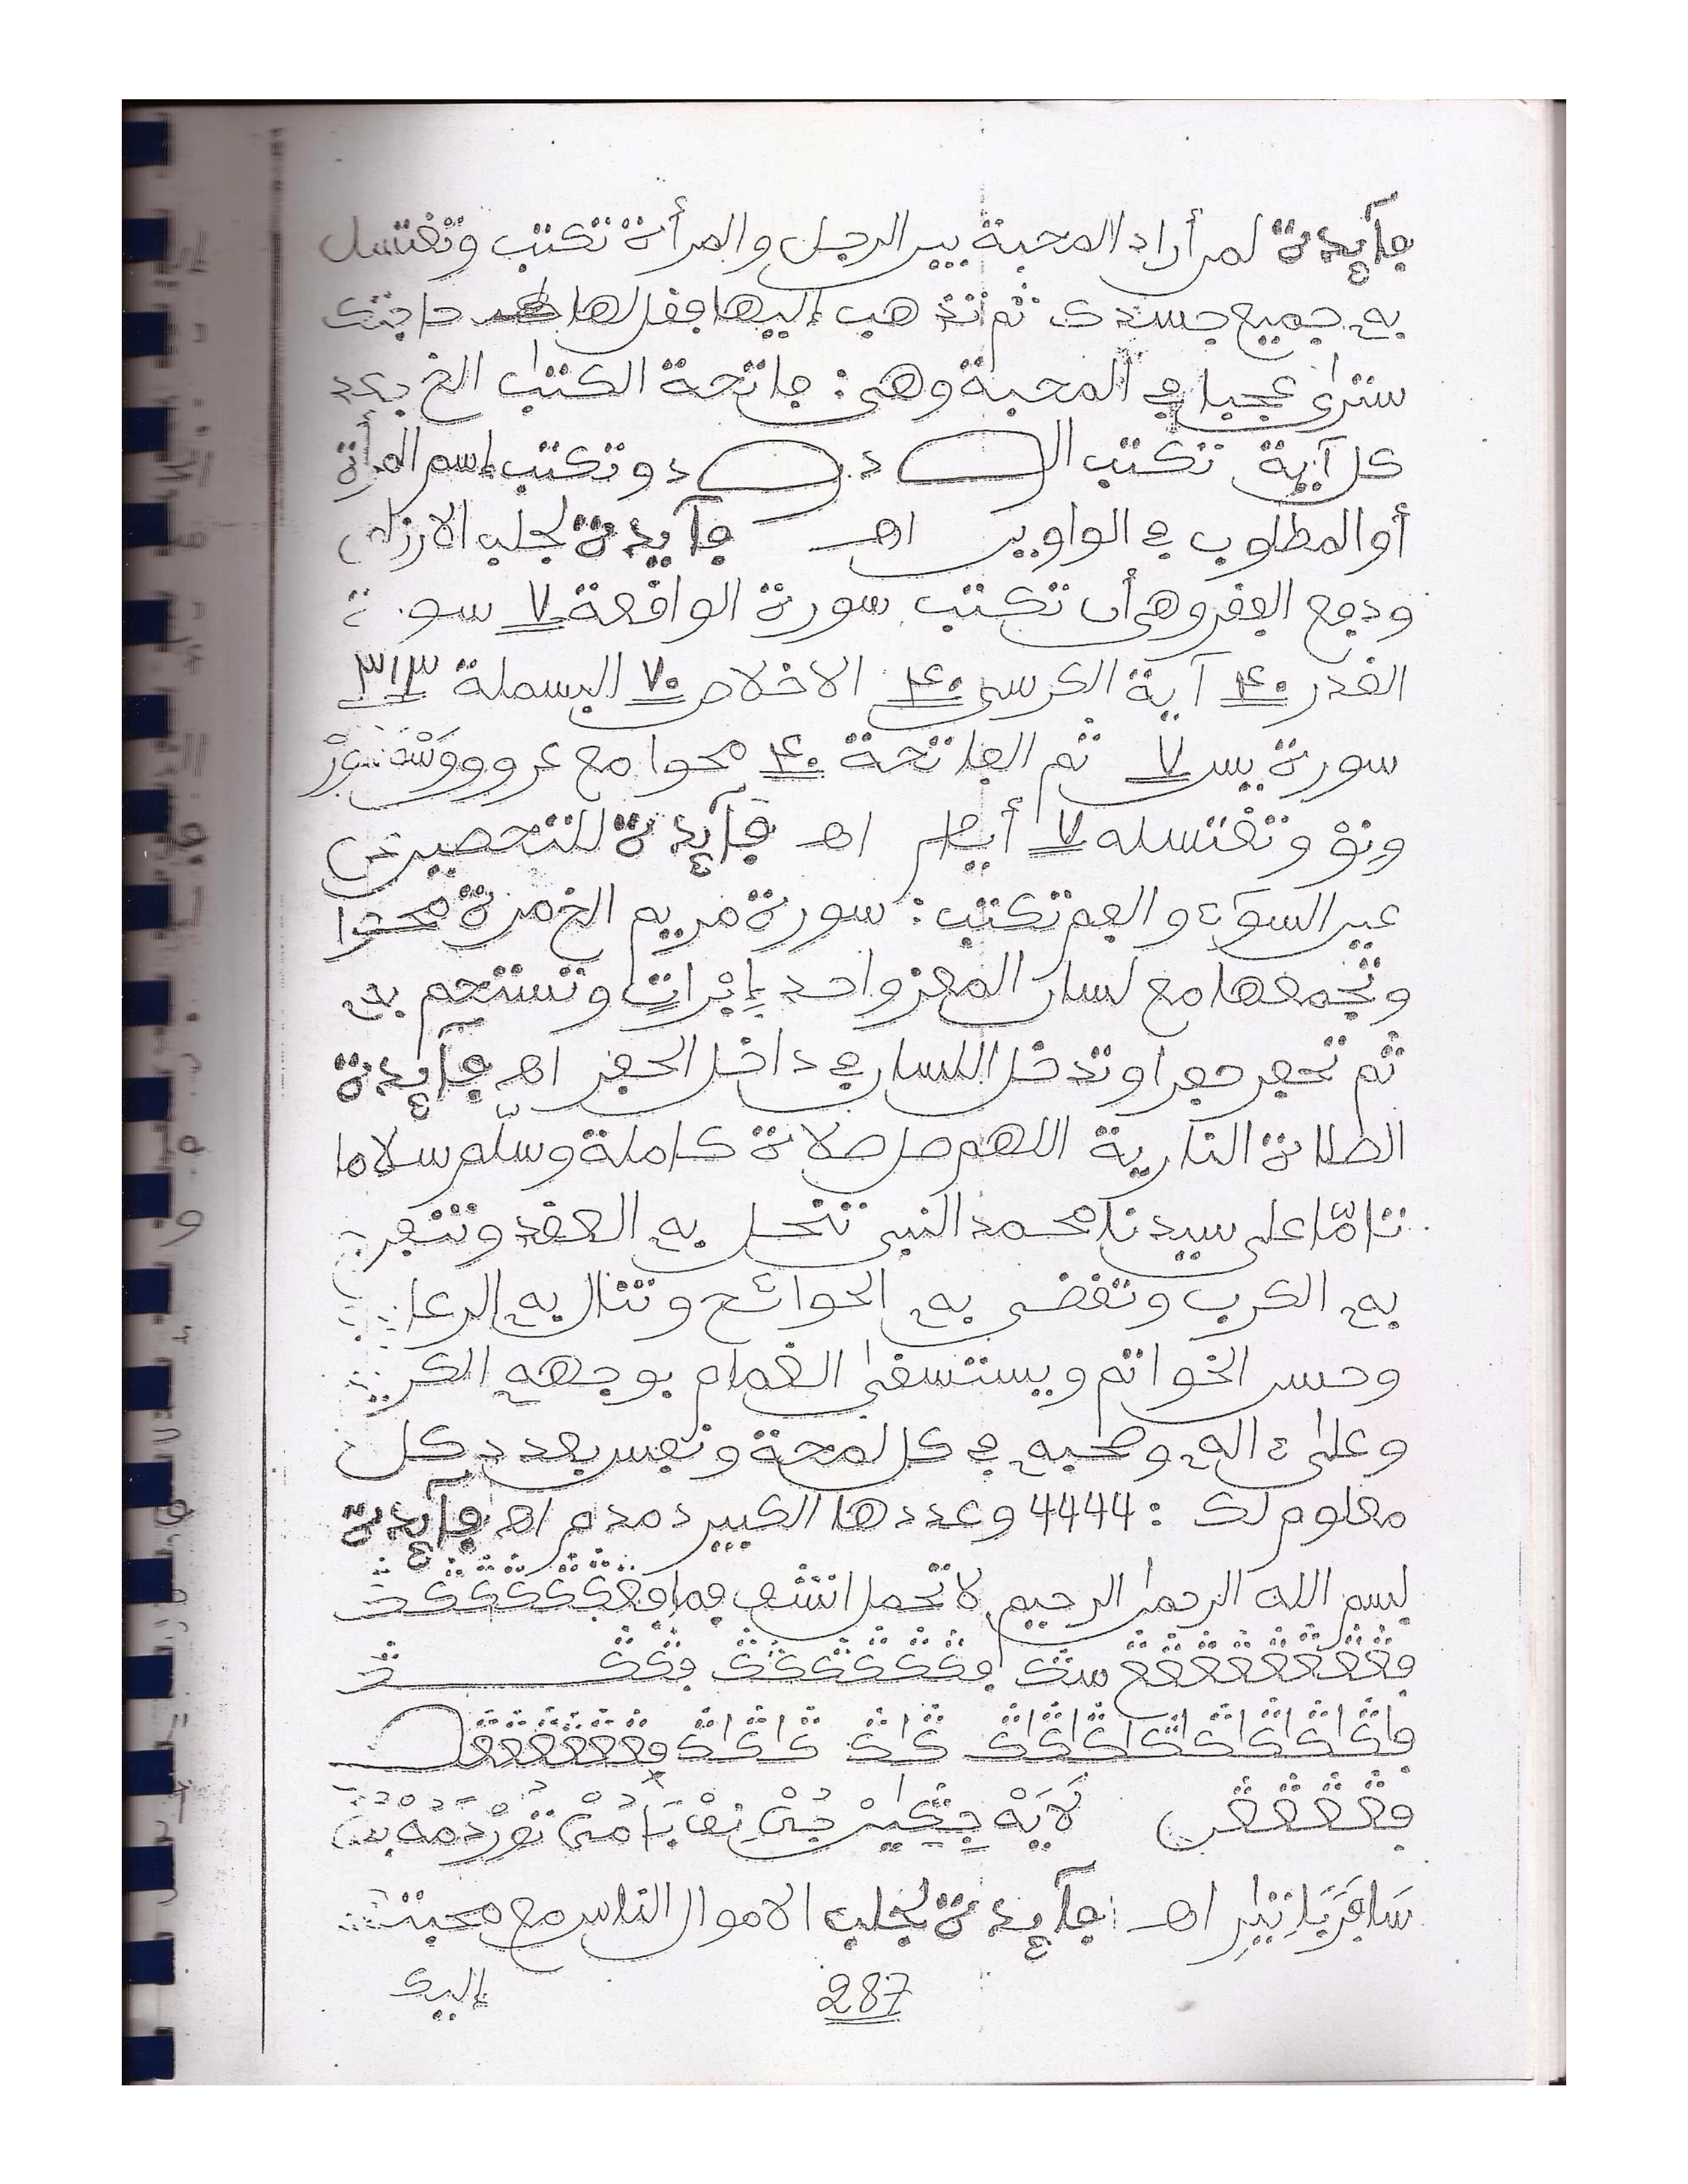 فآئدة لمن أراد المحبة بين الرجل والمرأة تكتب وتغتسل
به جميع جسدك ثم تذهب إليها فقل لها حاجتك
سترى عجبا في المحبة وهي: فاتحة الكتب الخ بعد
كل آية تكتب الـ و د و د وتكتب إسم المرأة
أو المطلوب في الواوين اهـ فآئدة لجلب الارزاق
ودفع الفقر وهي أن تكتب سورة الواقعة ٧ سورة
القدر ٤٠ آية الكرسي ٤٠ الاخلاص ٧٠ البسملة ٣١٣
سورة يس ٧ ثم الفاتحة ٤٠ محوا مع عروو
وتغتسله ٧ أيام اهـ فآئدة للتحصين
عين السوء والفم تكتب: سورة مريم الخ مرة محوا
وتجمعها مع لسان المعز واحد بإبرات وتستحم به
ثم تحفر حفرا وتدخل اللسان في داخل الحفر اهـ فآئدة
الصلاة النارية اللهم صل صلاة كاملة وسلم سلاما
تامّا على سيدنا محمد النبي تنحل به العقد وتنفرج
به الكرب وتقضى به الحوائج وتنال به الرغائب
وحسن الخواتم ويستسقى الغمام بوجهه الكريم
وعلى ءاله وصحبه في كل لمحة ونفس بعدد كل
معلوم لك : 4444 وعددها الكبير دمدم اهـ فآئدة
بسم الله الرحمن الرحيم لا تحمل
اهـ فآئدة لجلب الاموال الناس مع محبتهم
287 إليك